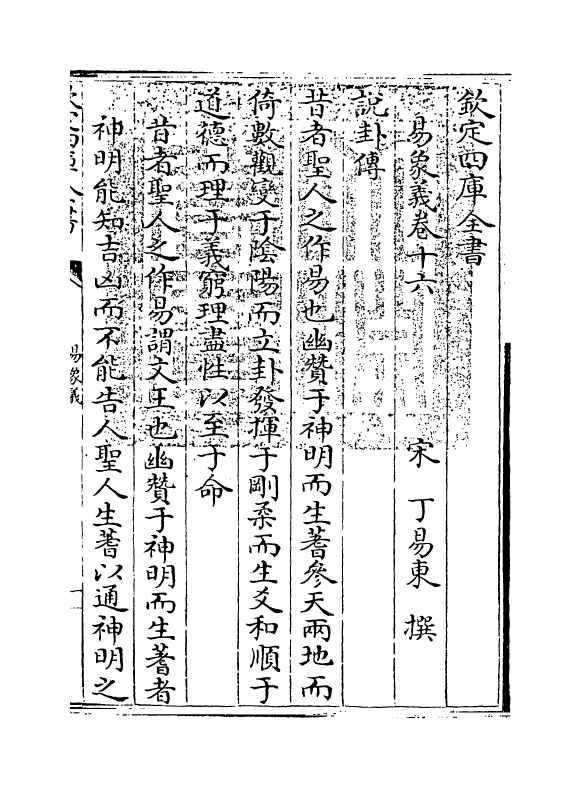 欽定四庫全書
易象義卷十六
宋 丁易東 撰
說卦傳
昔者聖人之作易也幽贊于神明而生蓍參天兩地而
倚數觀變于陰陽而立卦發揮于剛柔而生爻和順于
道德而理于義窮理盡性以至于命
昔者聖人之作易謂文王也幽贊于神明而生蓍者
神明能知吉凶而不能告人聖人生蓍以通神明之
易象義
一